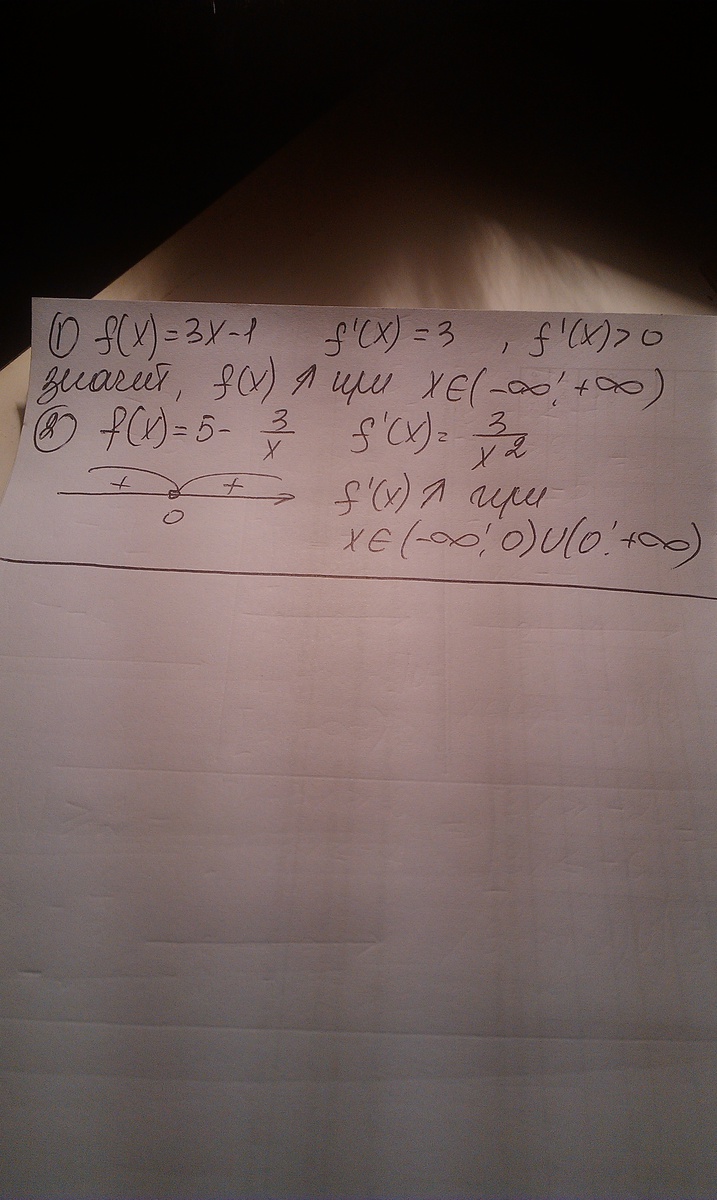 ① f(x)=3x-1 f'(x)=3 , f'(x)>0
значит, f(x) ↗ при x∈(-∞; +∞)
② f(x)=5- 3/x f'(x)= 3/x²
+ + f'(x) ↗ при
0 x∈(-∞; 0)∪(0; +∞)